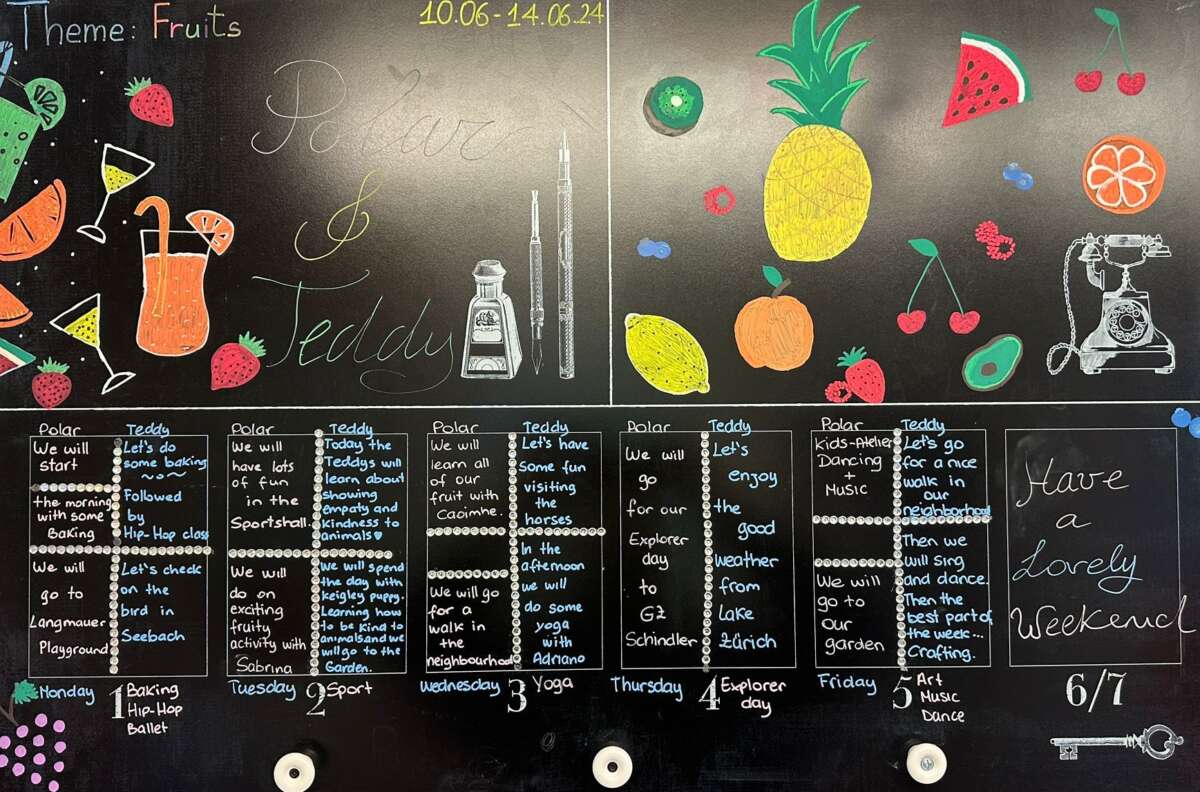 Theme: Fruits
10.06-14.06.24
Polar
&
Teddy
Polar
We will
start
the morning
with some
Baking
We will
go to
Langmauer
Playground
Teddy
Let's do
some baking
Followed
by
Hip-Hop class
Let's check
on the
bird in
Seebach
Monday
1
Baking
Hip-Hop
Ballet
Polar
We will
have lots
of fun
in the
Sportshall.
We will
do on
exciting
fruity
activity with
Sabrina
Teddy
Today the
Teddys will
learn about
showing
empaty and
kindness to
animals♥
We will spend
the day with
keigley puppy.
Learning how
to be kind to
animals.and we
will go to the
Garden.
Tuesday
2
Sport
Polar
We will
learn all
of our
fruit with
Caoimhe.
We will go
for a
walk in
the
neighbourhood
Teddy
Let's have
some fun
visiting
the
horses
In the
afternoon
we will
do some
yoga
with
Adriano
Wednesday
3
Yoga
Polar
We will
go
for our
Explorer
day
to
GZ
Schindler
Teddy
Let's
enjoy
the
good
weather
from
Lake
Zürich
Thursday
4
Explorer
day
Polar
Kids-Atelier
Dancing
+
Music
We will
go to
our
garden
Teddy
Let's go
for a nice
walk in
our
neighborhood
Then we
will sing
and dance.
Then the
best part of
the week...
Crafting.
Friday
5
Art
Music
Dance
Have
a
Lovely
Weekend
6/7